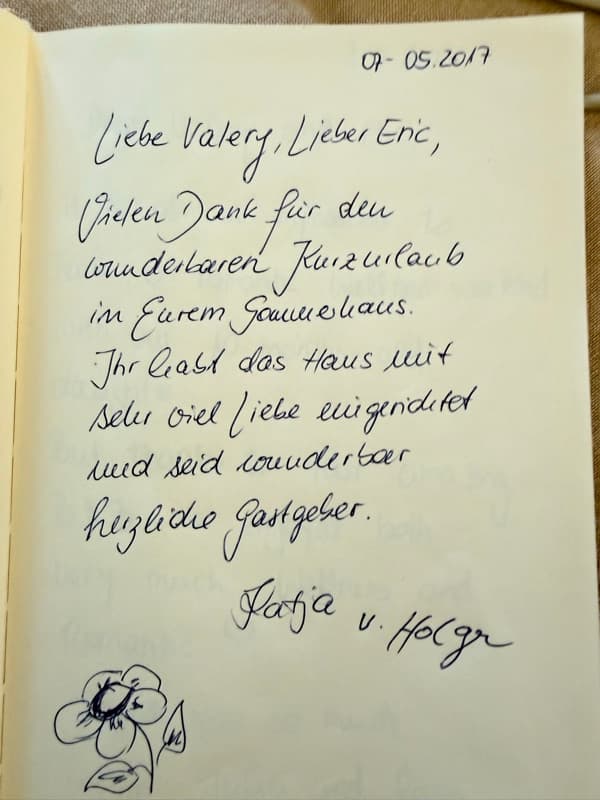 07-05.2017
Liebe Valery, Lieber Eric,
Vielen Dank für den
wunderbaren Kurzurlaub
in Eurem Sommerhaus.
Ihr habt das Haus mit
sehr viel Liebe eingerichtet
und seid wunderbar
herzliche Gastgeber.
Katja u. Holger